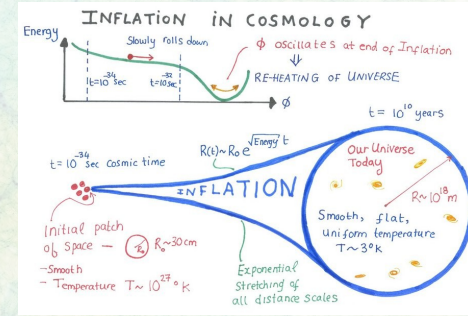 INFLATION IN COSMOLOGY
Energy
Slowly rolls down
t=10^-34 sec
t=10^-32 sec
ϕ
ϕ oscillates at end of Inflation
⇓
RE-HEATING OF UNIVERSE
t = 10^10 years
t = 10^-34 sec cosmic time
R(t)~R₀ e^√Energy t
INFLATION
Our Universe
Today
R~10^18 m
Smooth, flat,
uniform temperature
T~3°K
Initial patch
of space — R₀ R₀~30cm
-Smooth
- Temperature T~10^27 °K
Exponential
Stretching of
all distance scales